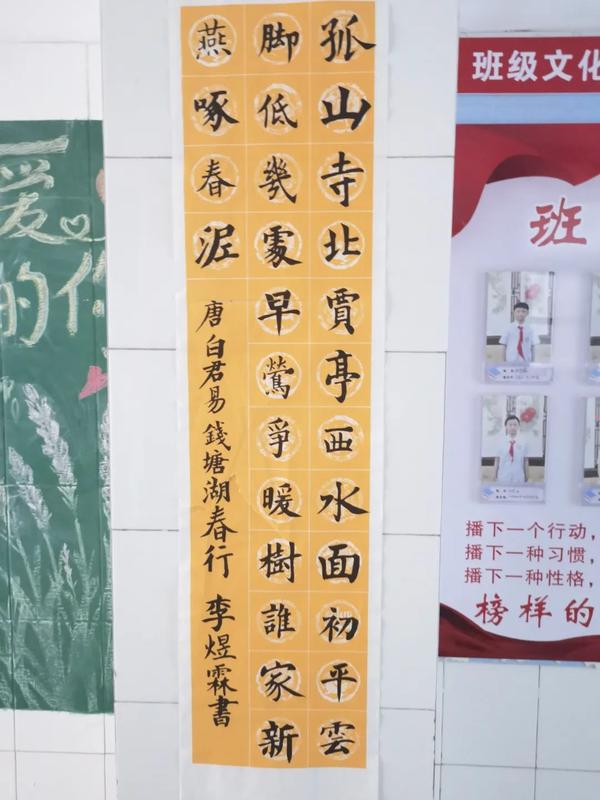 孤山寺北賈亭西水面初平雲
脚低幾處早鶯爭暖樹誰家新
燕啄春泥
唐白君易錢塘湖春行 李煜霖書
班级文化
班
播下一个行动，
播下一种习惯，
播下一种性格，
榜样的
爱
的